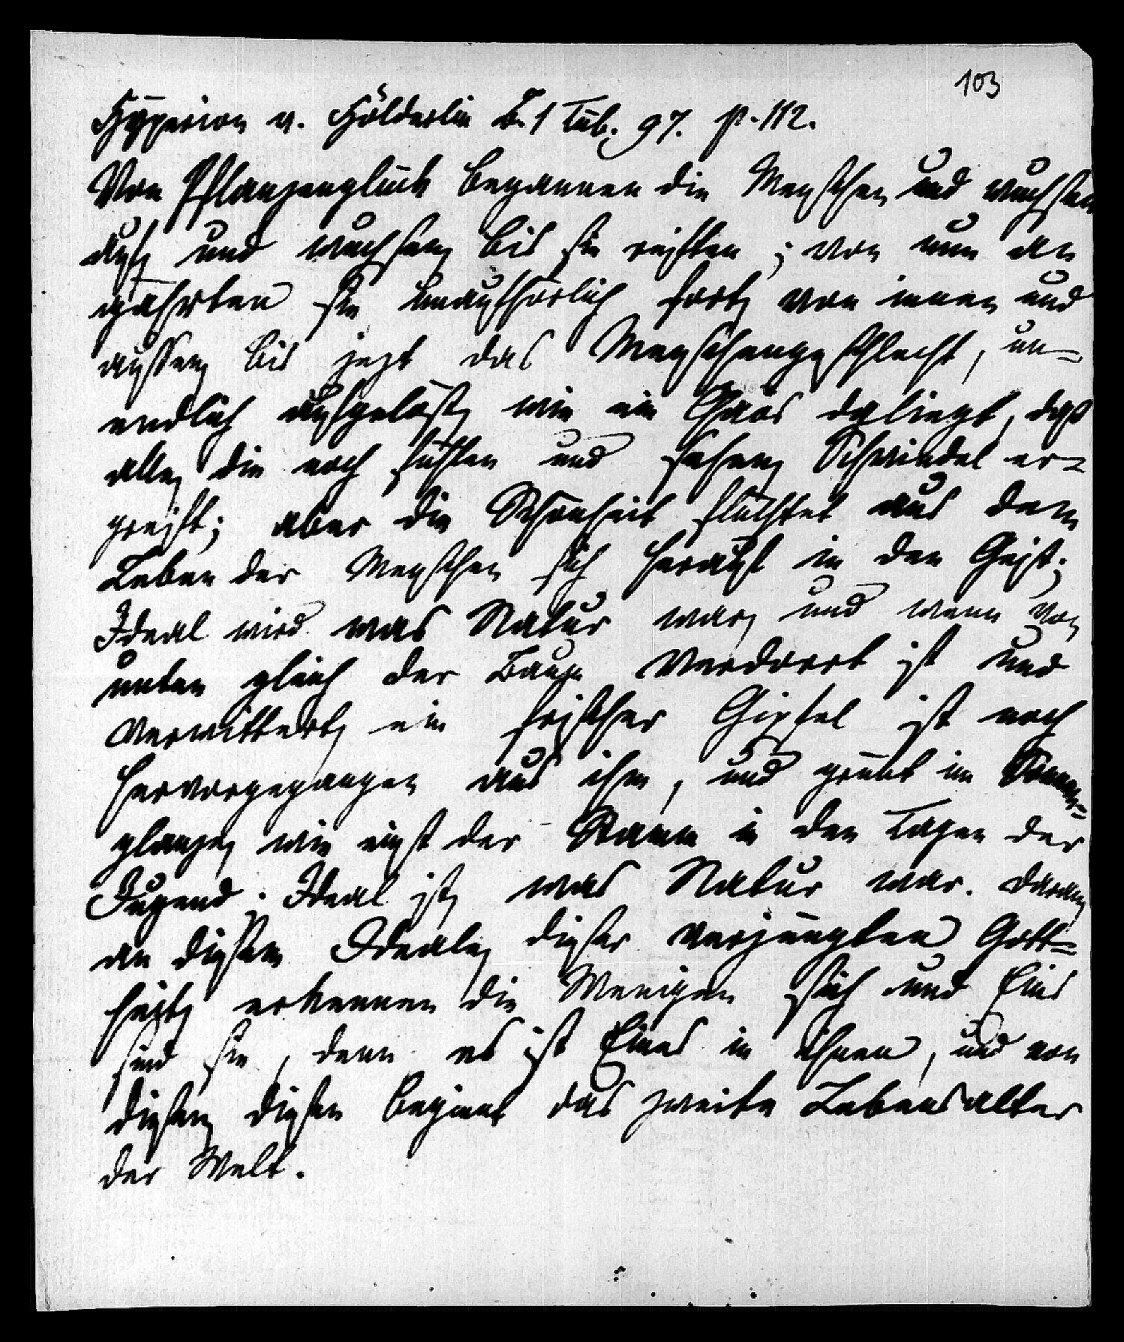 103
Hyperion v. Hölderlin B. 1 Tüb. 97. p. 112.
Von Pflanzenglück begannen die Menschen und wuchsen
auf, und wuchsen, bis sie reiften; von nun an
gährten sie unaufhörlich fort, von innen und
aussen, bis jezt das Menschengeschlecht, un-
endlich aufgelöst, wie ein Chaos daliegt, daß
alle, die noch fühlen und sehen, Schwindel er-
greift; aber die Schönheit flüchtet aus dem
Leben der Menschen sich herauf in den Geist;
Ideal wird was Natur war, und wenn von
unten gleich der Baum verdorrt ist und
verwittert, ein frischer Gipfel ist noch
hervorgegangen aus ihm, und grünt im Sonnen-
glanze, wie einst der Stamm in den Tagen der
Jugend; Ideal ist, was Natur war. Daran,
an diesem Ideale, dieser verjüngten Gott-
heit, erkennen die Wenigen sich und Eins
sind sie, denn es ist Eines in ihnen, und von
diesen, diesen beginnt das zweite Lebensalter
der Welt.